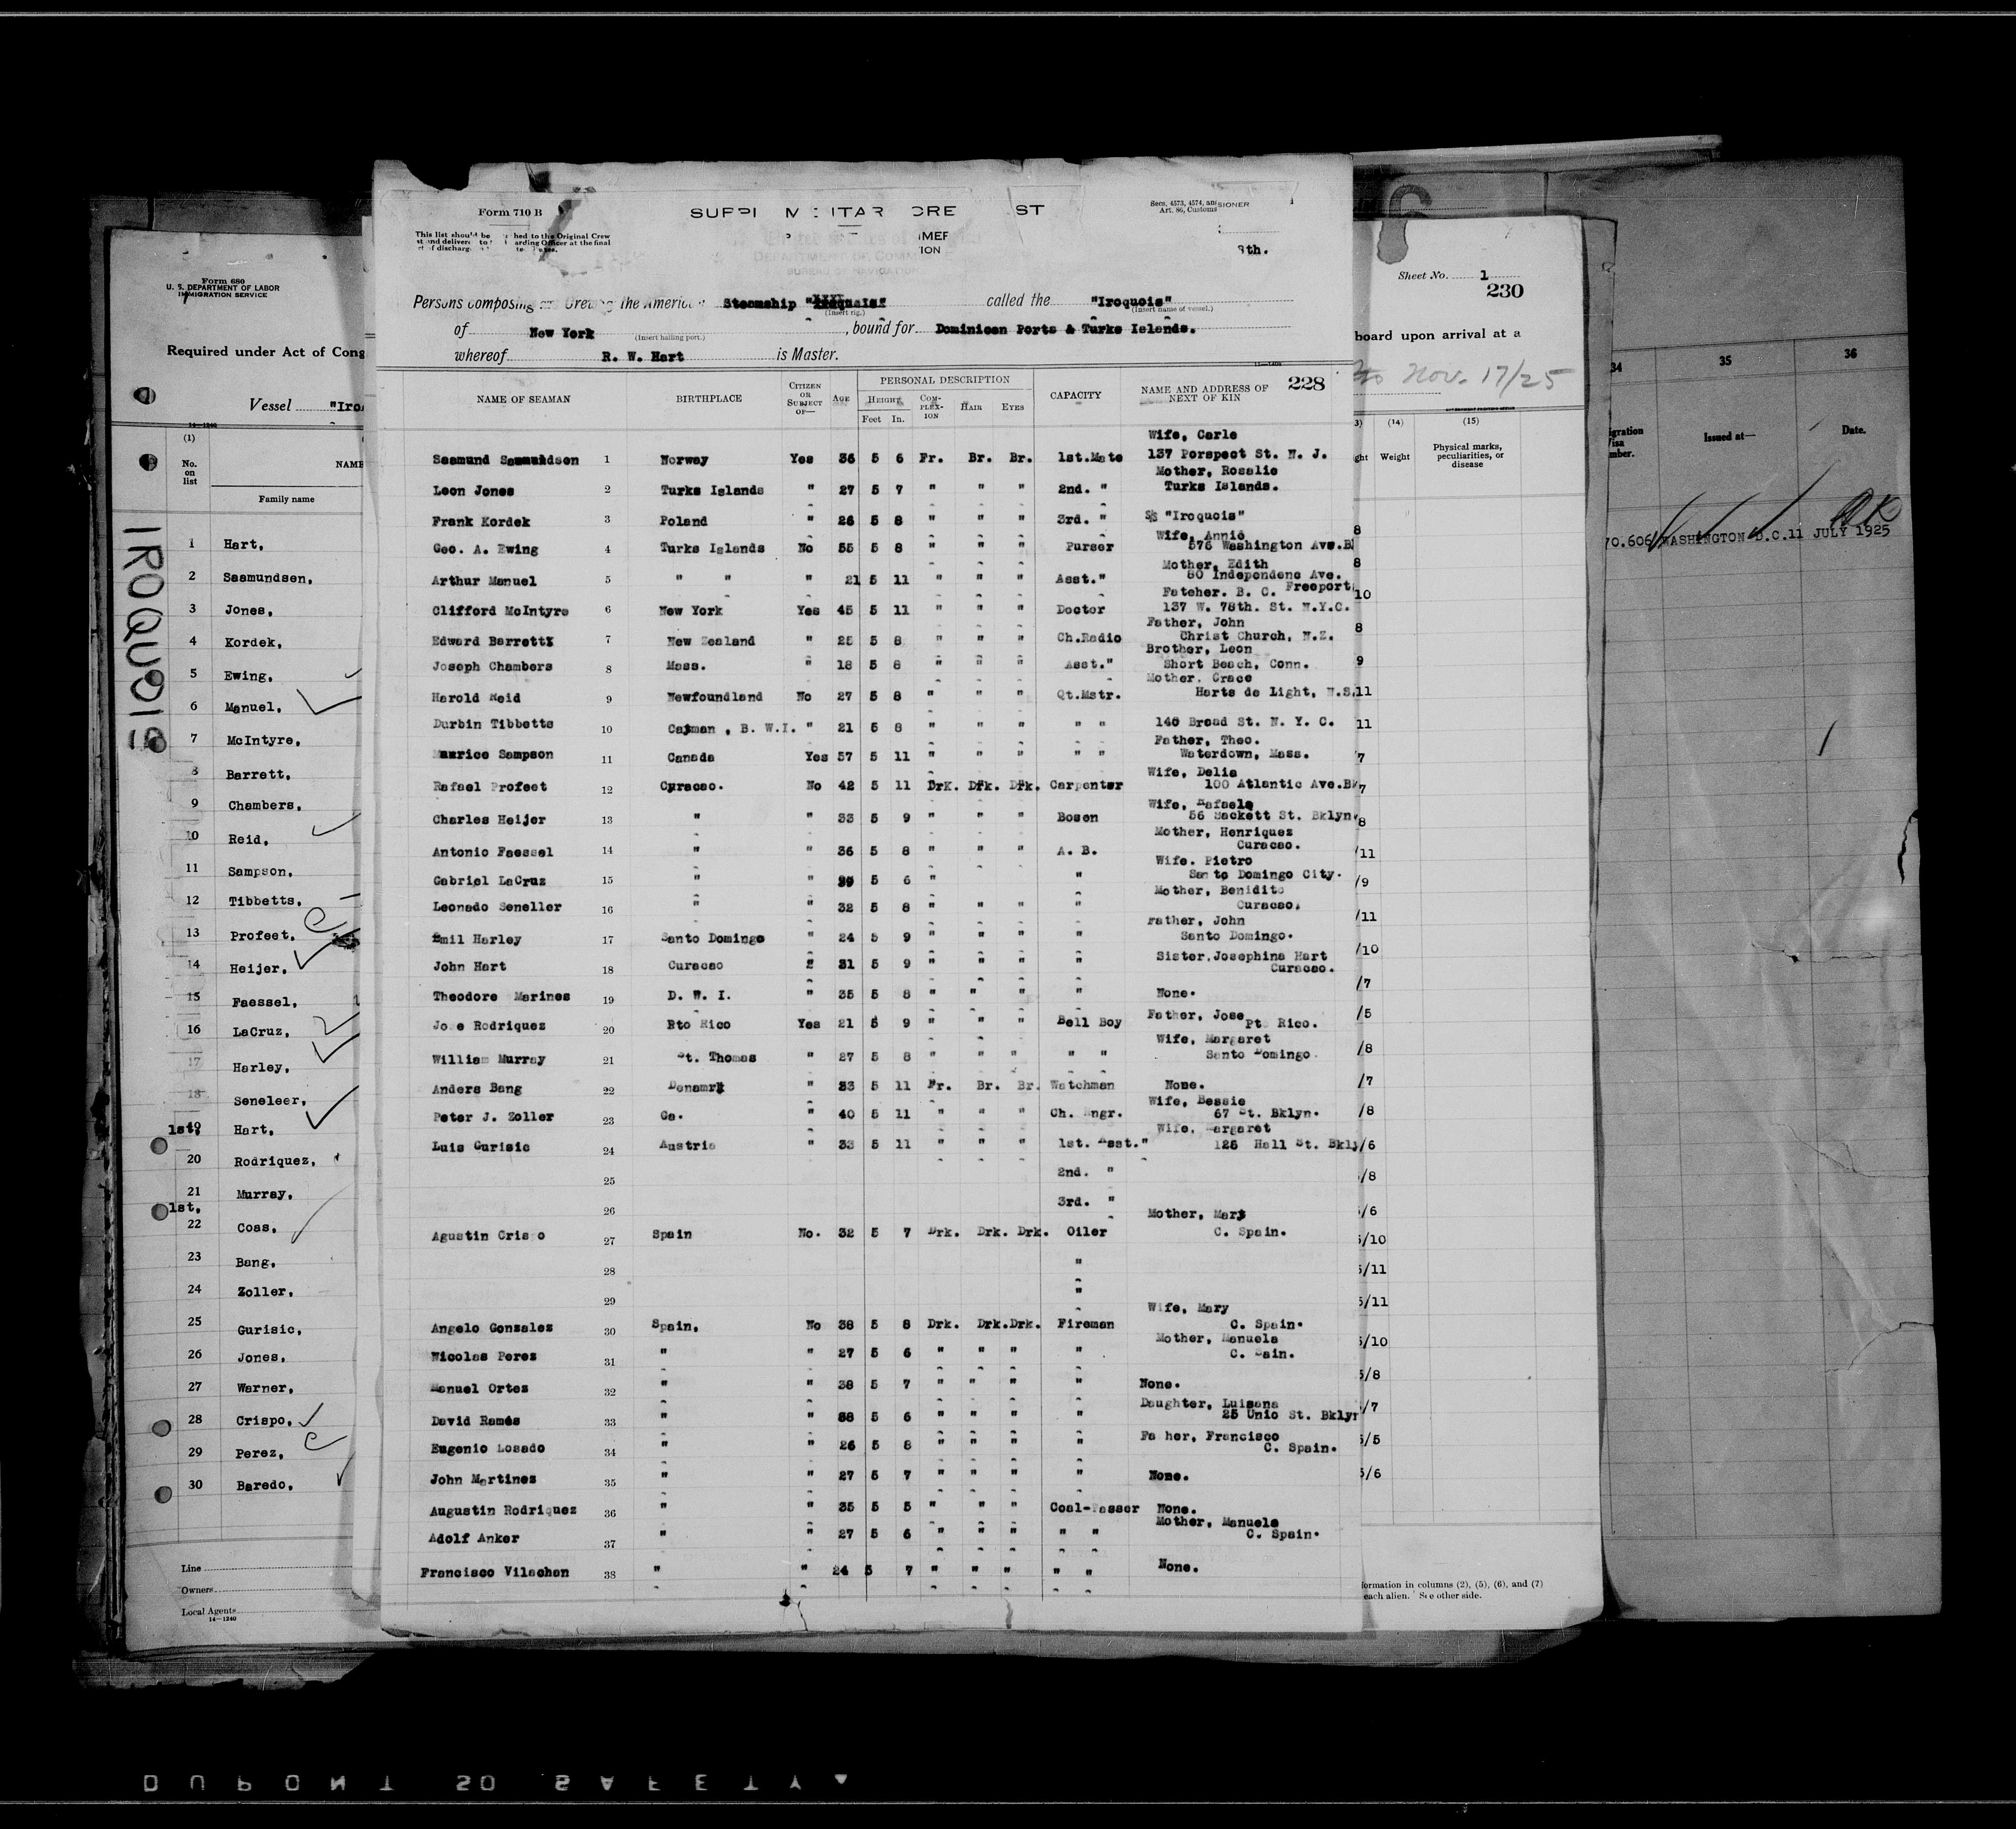 Form 680
U. S. DEPARTMENT OF LABOR
IMMIGRATION SERVICE
Required under Act of Cong
Vessel "Iro
14—1240
(1)
No. on list
NAME
Family name
IROQUOIS
1 Hart,
2 Saamundsen,
3 Jones,
4 Kordek,
5 Ewing,
6 Manuel,
7 McIntyre,
8 Barrett,
9 Chambers,
10 Reid,
11 Sampson,
12 Tibbetts,
13 Profeet,
14 Heijer,
15 Faessel,
16 LaCruz,
17 Harley,
18 Seneleer,
1st, 19 Hart,
20 Rodriquez,
21 Murray,
1st.
22 Coas,
23 Bang,
24 Zoller,
25 Gurisic,
26 Jones,
27 Warner,
28 Crispo,
29 Perez,
30 Baredo,
Line
Owners
Local Agents
14—1240
Form 710 B
Secs. 4573, 4574, an
Art. 86, Customs
SIONER
8th.
Persons composing the Steamship called the "Iroquois"
(Insert rig.) (Insert name of vessel.)
of New York , bound for Dominican Ports & Turks Islands.
(Insert hailing port.)
whereof R. W. Hart is Master.
228
NAME OF SEAMAN BIRTHPLACE CITIZEN OR SUBJECT OF— AGE PERSONAL DESCRIPTION HEIGHT Feet In. COM-PLEX-ION HAIR EYES CAPACITY NAME AND ADDRESS OF NEXT OF KIN
Wife, Carle
Saamund Saamundsen 1 Norway Yes 36 5 6 Fr. Br. Br. 1st.Mate 137 Porspect St. N. J.
Mother, Rosalie
Leon Jones 2 Turks Islands " 27 5 7 " " " 2nd. " Turks Islands.
Frank Kordek 3 Poland " 26 5 8 " " " 3rd. " S/S "Iroquois"
Wife, Annie
Geo. A. Ewing 4 Turks Islands No 55 5 8 " " " Purser 576 Washington Ave.B
Mother, Edith
Arthur Manuel 5 " " " 21 5 11 " " " Asst." 80 Independenc Ave.
Freeport
Fatcher. B. C.
Clifford McIntyre 6 New York Yes 45 5 11 " " " Doctor 137 W. 78th. St. N.Y.C.
Father, John
Edward Barrett 7 New Zealand " 25 5 8 " " " Ch.Radio Christ Church, N.Z.
Brother, Leon
Joseph Chambers 8 Mass. " 18 5 8 " " " Asst." Short Beach, Conn.
Mother. Grace
Harold Reid 9 Newfoundland No 27 5 8 " " " Qt.Mstr. Harts de Light, N.S.
Durbin Tibbetts 10 Cayman , B. W.I. " 21 5 8 " " " " " 146 Broad St. N. Y. C.
Father, Theo.
Maurice Sampson 11 Canada Yes 57 5 11 " " " " " Waterdown, Mass.
Wife, Delia
Rafael Profeet 12 Curacao. No 42 5 11 Drk. Drk. Drk. Carpenter 100 Atlantic Ave.B
Wife, Rafaela
Charles Heijer 13 " " 33 5 9 " " " Bosen 56 Sackett St. Bklyn
Mother, Henriquez
Antonio Faessel 14 " " 36 5 8 " " " A. B. Curacao.
Wife. Pietro
Gabriel LaCruz 15 " " 5 6 " " Santo Domingo City.
Mother, Benidito
Leonado Seneller 16 " " 32 5 8 " " " " Curacao.
Father, John
Emil Harley 17 Santo Domingo " 24 5 9 " " " " Santo Domingo.
John Hart 18 Curacao 31 5 9 " " " " Sister,Josephina Hart
Curacao.
Theodore Marines 19 D. W. I. " 35 5 8 " " " " None.
Jose Rodriquez 20 Pto Rico Yes 21 5 9 " " " Bell Boy Father, Jose
Pt. Rico.
Wife, Margaret
William Murray 21 St. Thomas " 27 5 8 " " " " " Santo Domingo.
Anders Bang 22 " 33 5 11 Fr. Br. Br. Watchman None.
Wife, Bessie
Peter J. Zoller 23 Ga. " 40 5 11 " " " Ch. Engr. 67 St. Bklyn.
Wife, Margaret
Luis Gurisic 24 Austria " 33 5 11 " " " 1st. Asst." 125 Hall St. Bkly
25 2nd. "
26 3rd. "
Mother, Mary
Agustin Crispo 27 Spain No. 32 5 7 Drk. Drk. Drk. Oiler C. Spain.
28 "
29 "
Wife, Mary
Angelo Gonzalez 30 Spain, No 38 5 8 Drk. Drk.Drk. Fireman C. Spain.
Mother, Manuela
Nicolas Perez 31 " " 27 5 6 " " " " C. Sain.
Manuel Ortez 32 " " 38 5 7 " " " " None.
Daughter, Luisana
David Ramés 33 " " 5 6 " " " " 25 Unio St. Bklyn
Eugenio Losado 34 " " 26 5 8 " " " " Fa her, Francisco
C. Spain.
John Martines 35 " " 27 5 7 " " " " None.
Augustin Rodriquez 36 " " 35 5 5 " " " Coal-Passer None.
Mother, Manuela
Adolf Anker 37 " " 27 5 6 " " " " " C. Spain.
Francisco Vilachan 38 " " 24 5 7 " " " " " None.
Sheet No. 1
230
board upon arrival at a
Nov. 17/25
3) (14) (15)
ght Weight Physical marks, peculiarities, or disease
8
8
10
8
9
11
11
7
7
8
/11
/9
/11
/10
/7
/5
/8
/7
/8
/6
/8
5/6
5/10
5/11
5/11
5/10
5/8
/7
5/5
5/6
formation in columns (2), (5), (6), and (7)
each alien. See other side.
34 35 36
igration
isa
mber.
Issued at—
Date.
OK
70.606 WASHINGTON D.C.11 JULY 1925
DUPONT SO SAFETY